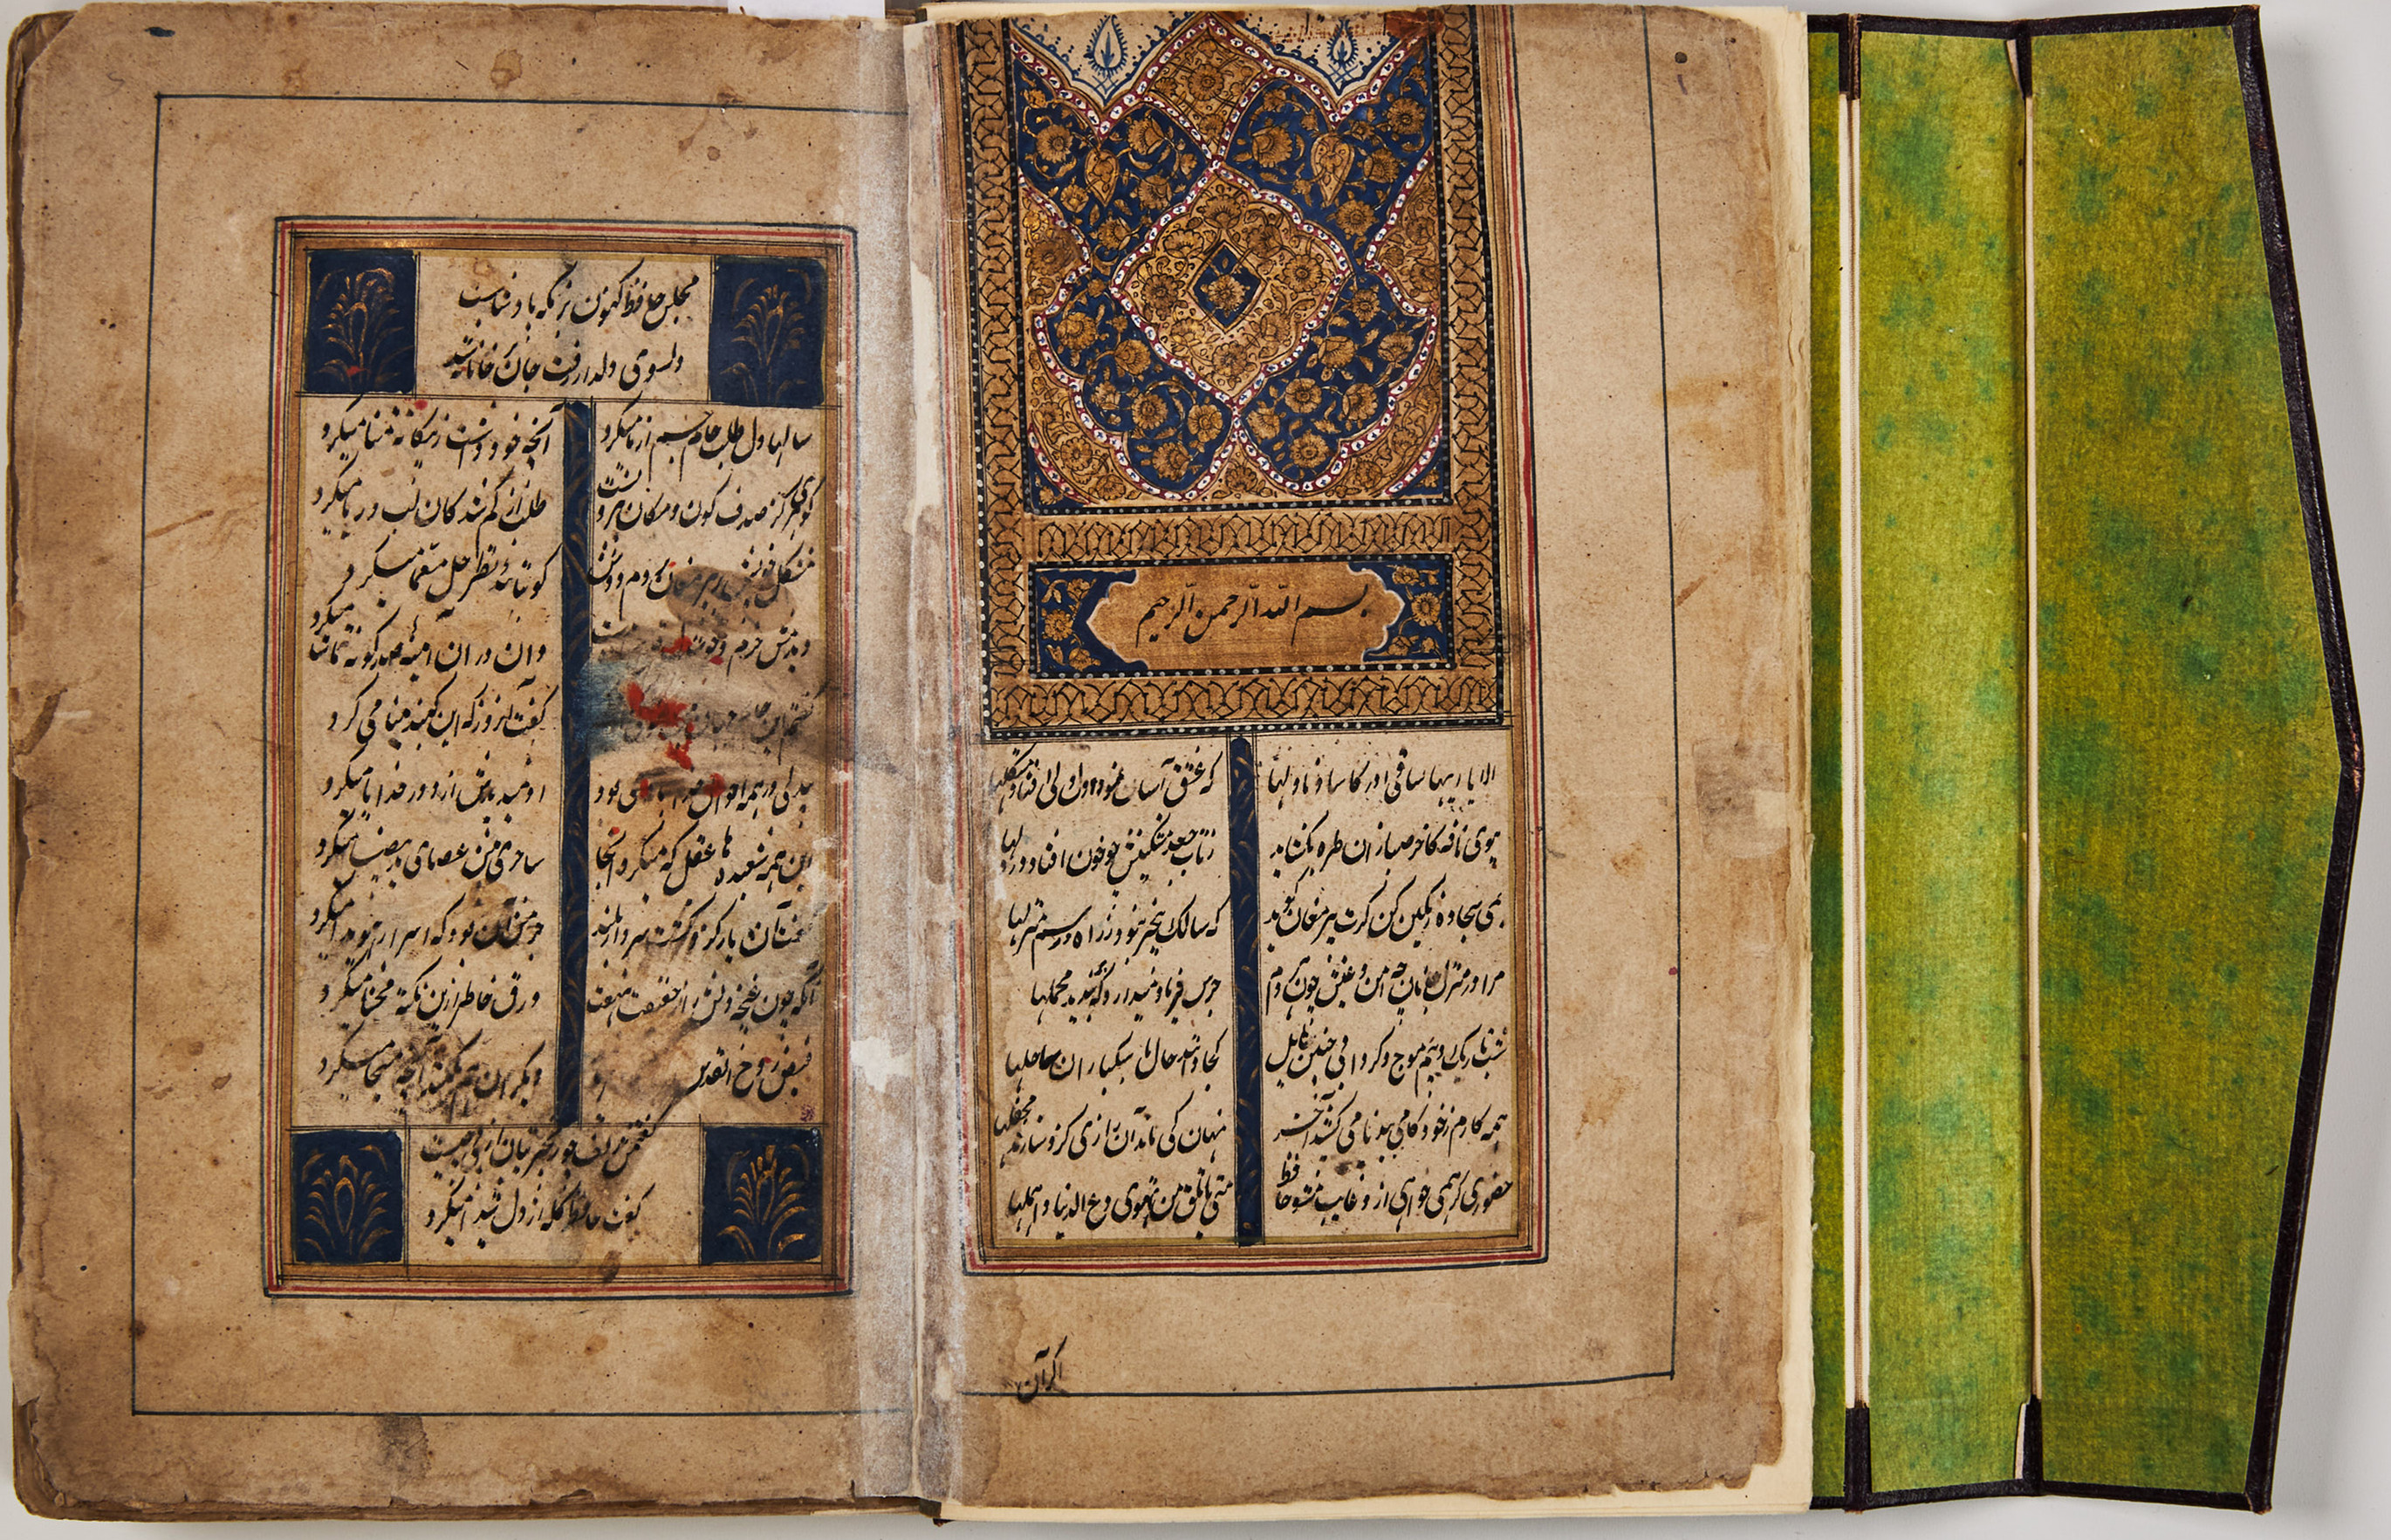 بسم الله الرحمن الرحیم
الا یا ایها ساقی ادر کاسا و ناولها که عشق آسان نمود اول ولی افتاد مشکلها
ببوی نافه کاخر صبا زان طره بکشاید ز تاب جعد مشکینش چو خون افتاد در دلها
بمی سجاده رنگین کن گرت پیر مغان گوید که سالک بیخبر نبود ز راه و رسم منزلها
مرا در منزل جانان چه امن و عیش چون هر دم جرس فریاد میدارد که بندید محملها
شب تاریک و بیم موج و گردابی چنین هایل کجا دانند حال ما سبکباران ساحلها
همه کارم ز خود کامی ببدنامی کشید آخر نهان کی ماند آن رازی کزو سازند محفلها
حضوری گر همی خواهی ازو غایب مشو حافظ متی ما تلق من تهوی دع الدنیا و اهملها
اگر آن
مجلس حافظ کنون بزمگه پادشاست
دل سوی دلدار رفت جان جانانه شد
سالها دل طلب جام جم از ما میکرد آنچه خود داشت ز بیگانه تمنا میکرد
گوهری کز صدف کون و مکان بیرونست طلب از گم شدگان لب دریا میکرد
مشکل خویش بر پیر مغان بردم دوش کو بتائید نظر حل معما میکرد
دیدمش خرم و واندر آن آینه صد گونه تماشا میکرد
گفتم این جام جهان بین گفت آنروز که این گنبد مینا می کرد
بیدلی در همه احوال خدا با وی بود او نمیدیدش از دور خدایا میکرد
این همه شعبده ها عقل که میکرد آنجا سامری پیش عصا و ید بیضا میکرد
گفت آن یار کزو گشت سر دار بلند جرمش آن بود که اسرار هویدا میکرد
آنکه چون غنچه دلش راز حقیقت بنهفت ورق خاطر ازین نکته محشا میکرد
فیض روح القدس ار دیگران هم بکنند آنچه مسیحا میکرد
گفتمش زلف چو زنجیر بتان از پی چیست
گفت حافظ گله از دل شیدا میکرد